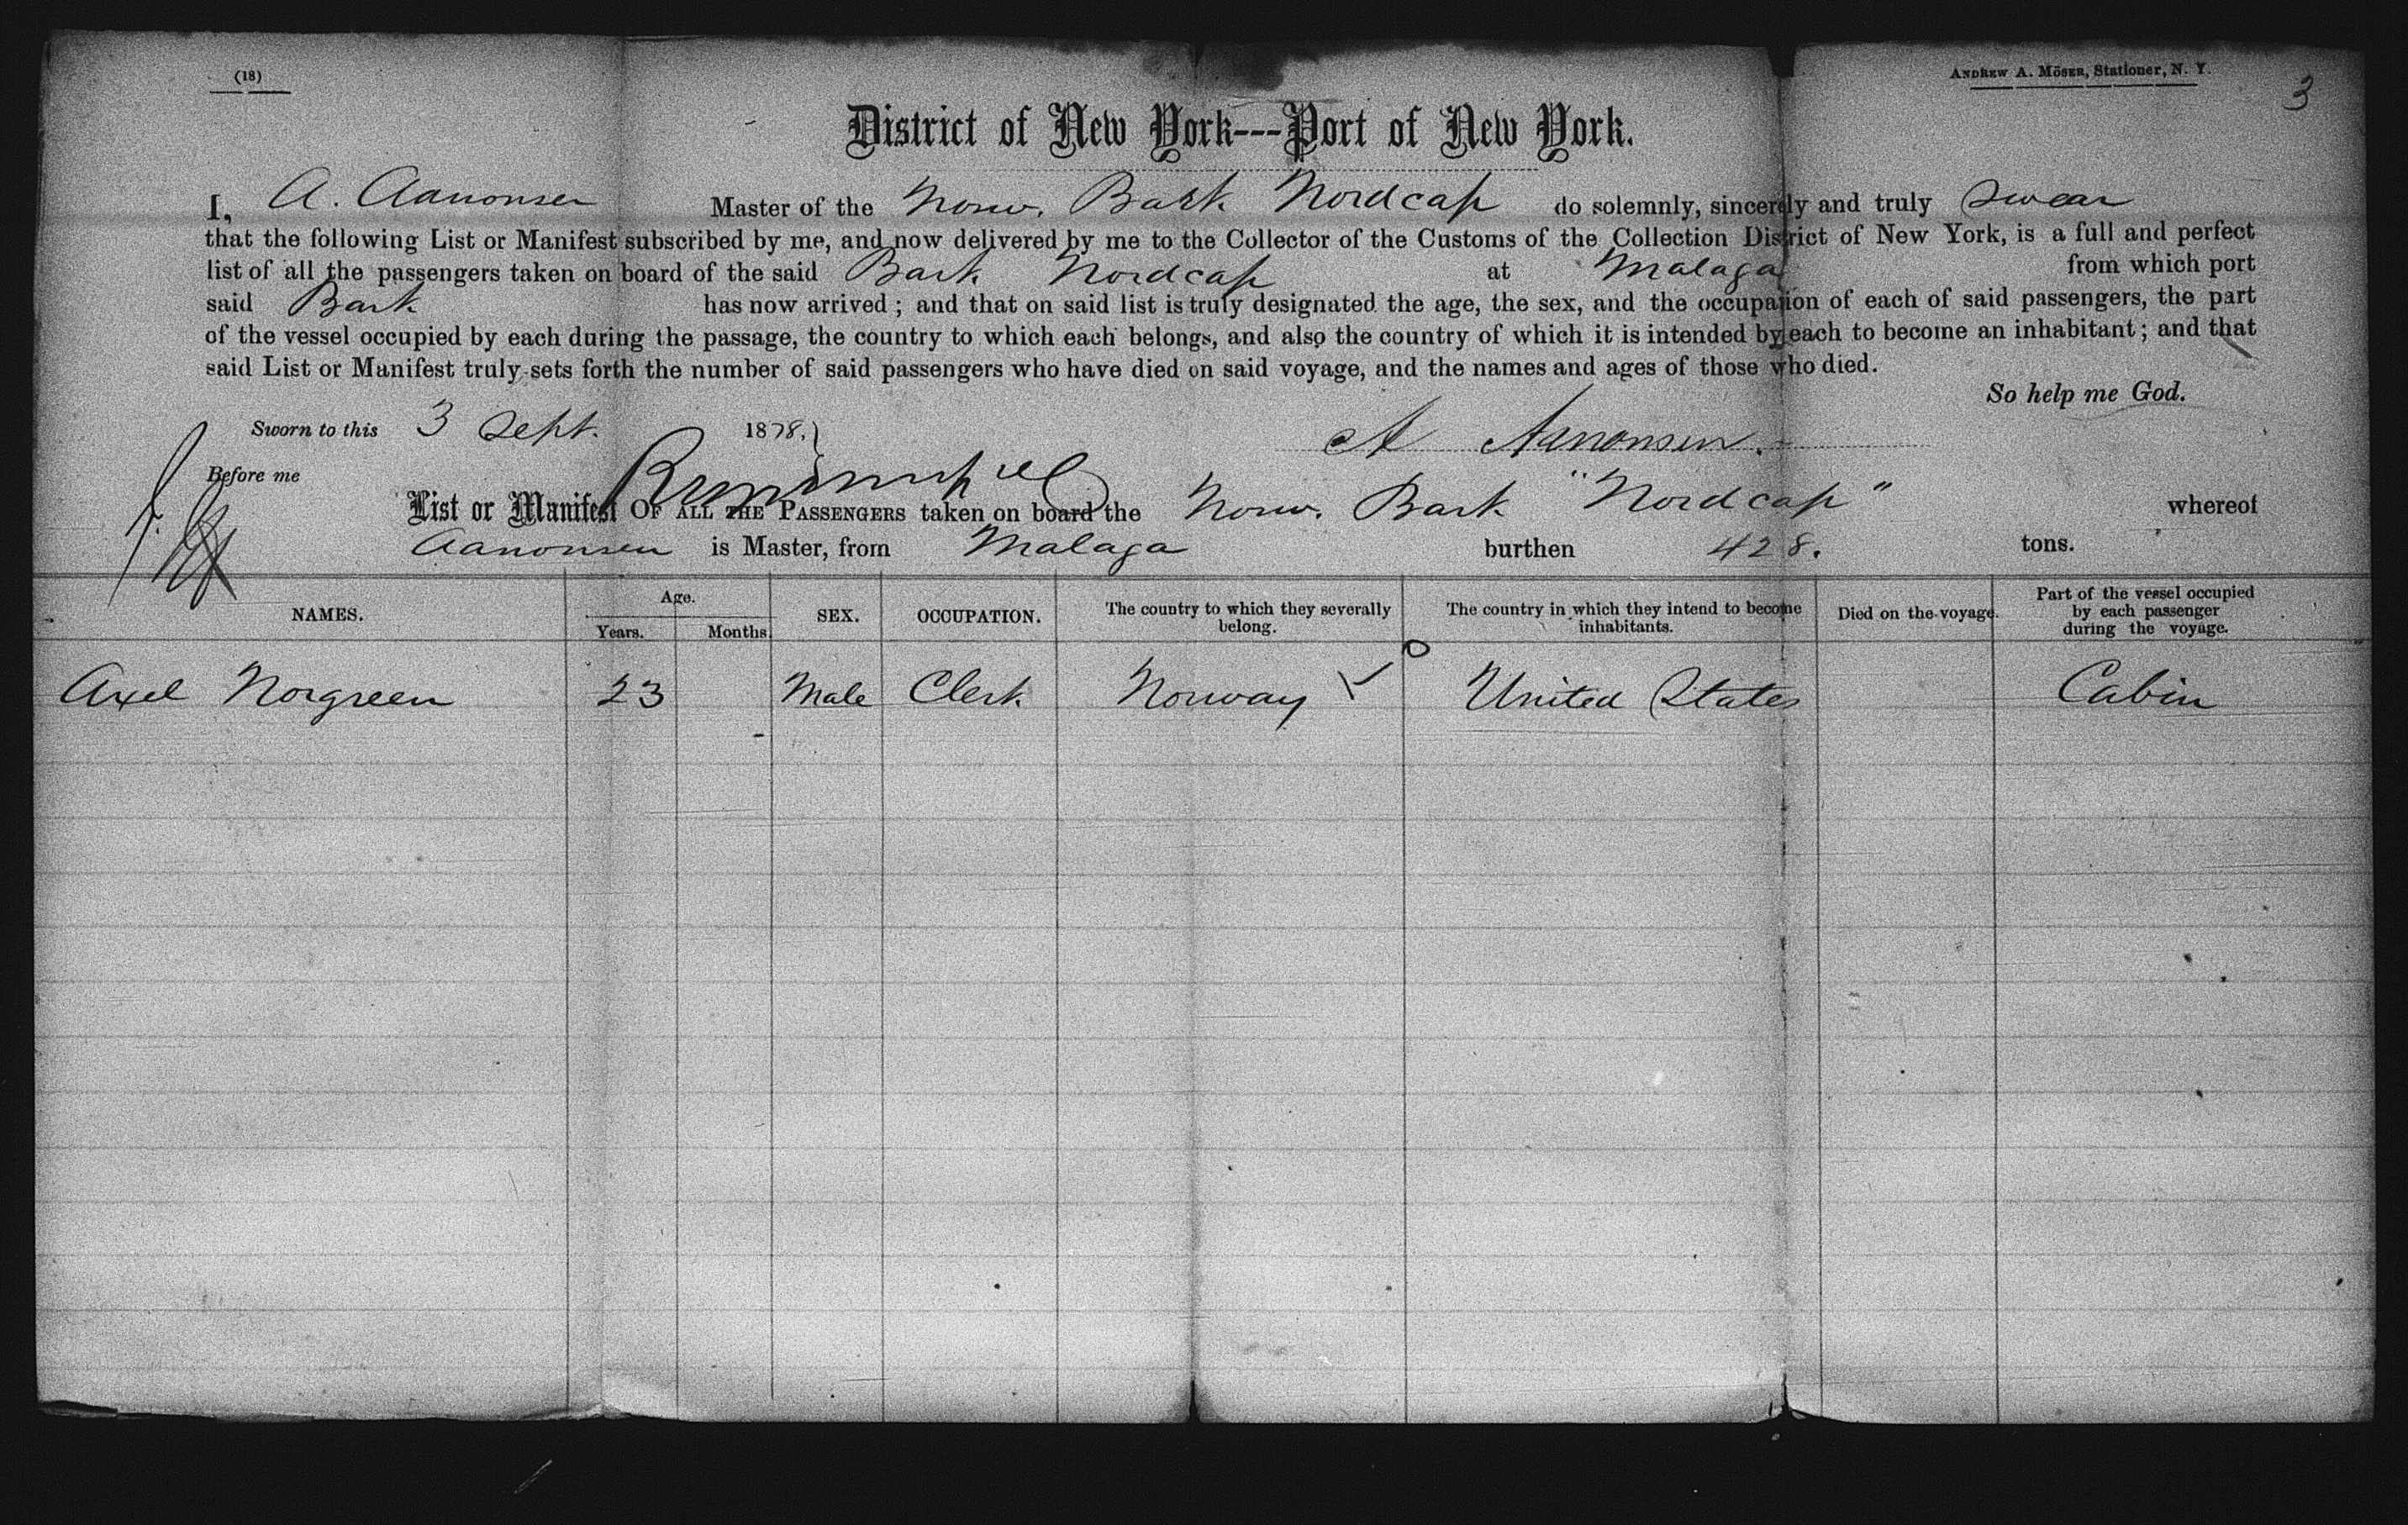 (18)
ANDREW A. MÖSER, Stationer, N. Y.
3
District of New York---Port of New York.
I, A. Aanonsen Master of the Norw. Bark Nordcap do solemnly, sincerely and truly swear
that the following List or Manifest subscribed by me, and now delivered by me to the Collector of the Customs of the Collection District of New York, is a full and perfect
list of all the passengers taken on board of the said Bark Nordcap at Malaga from which port
said Bark has now arrived; and that on said list is truly designated the age, the sex, and the occupation of each of said passengers, the part
of the vessel occupied by each during the passage, the country to which each belongs, and also the country of which it is intended by each to become an inhabitant; and that
said List or Manifest truly sets forth the number of said passengers who have died on said voyage, and the names and ages of those who died.
So help me God.
Sworn to this 3 Sept. 1878.
A Aanonsen.
Before me
List or Manifest OF ALL THE PASSENGERS taken on board the Norw. Bark "Nordcap" whereof
Aanonsen is Master, from Malaga burthen 428. tons.
NAMES. Age. Years. Months. SEX. OCCUPATION. The country to which they severally belong. The country in which they intend to become inhabitants. Died on the voyage. Part of the vessel occupied by each passenger during the voyage.
Axel Norgreen 23 Male Clerk Norway United States Cabin